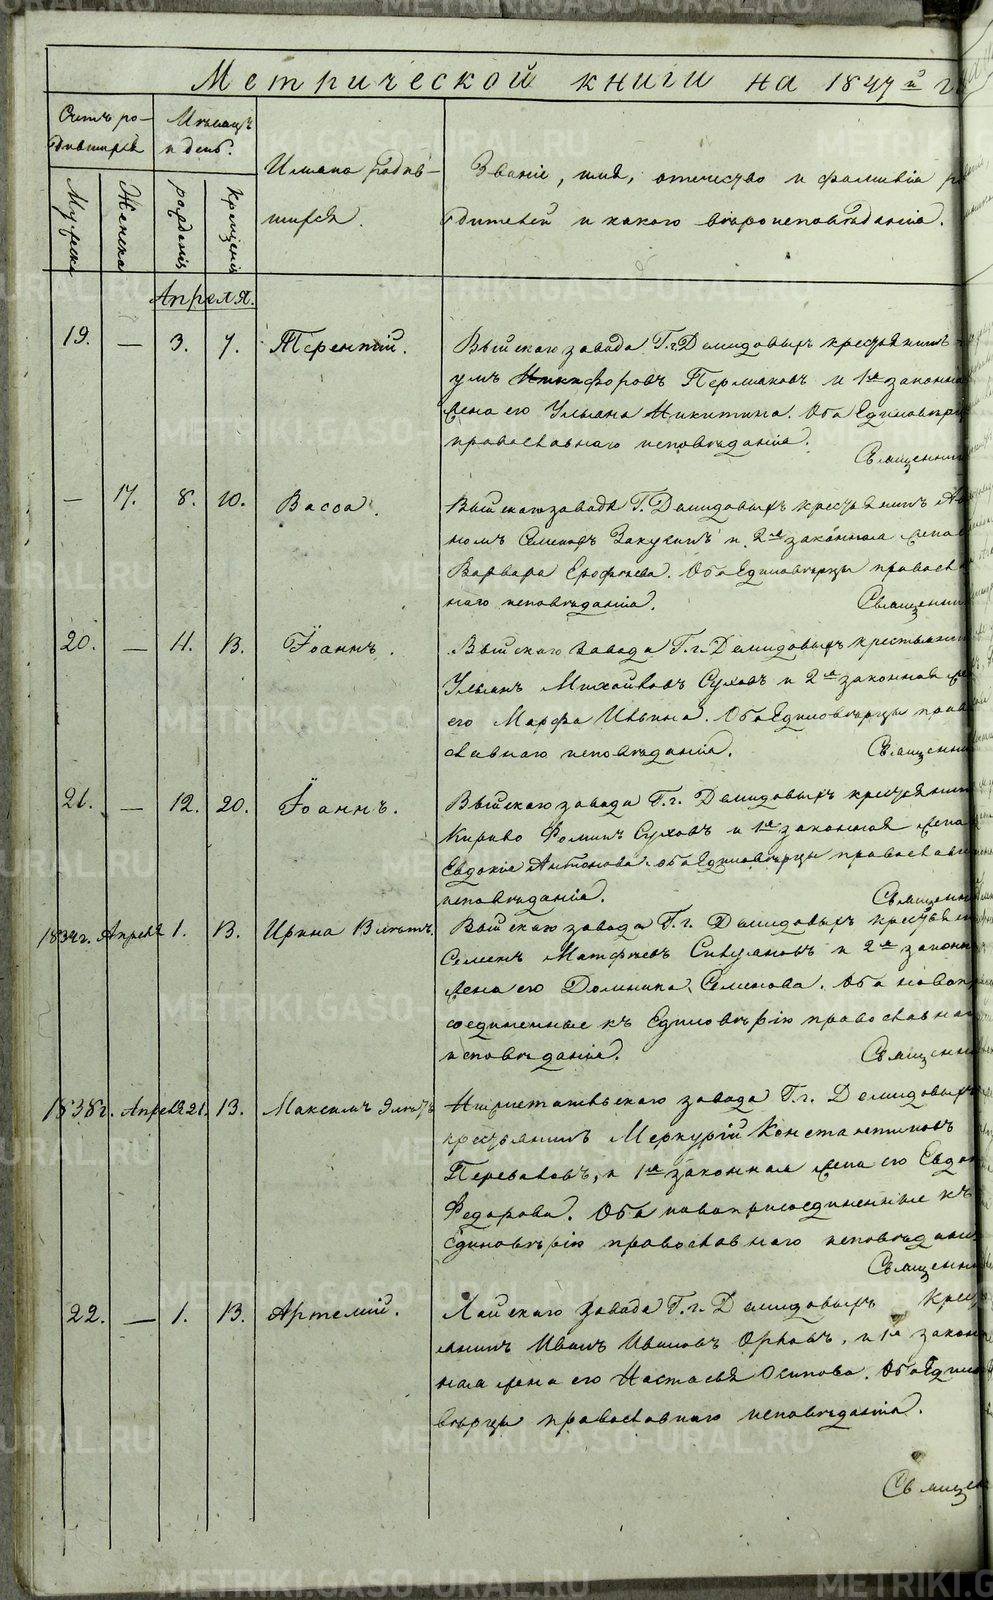 Метрической книги на 1847й г
Счетъ ро-
дившихся
Мѣсяцъ
и день.
Имена родив-
шихся.
Званіе, имя, отечество и фамилія ро
дителей и какого вѣроисповѣданія.
Мужеска
Женска
рожденія
крещенія
Апреля.
19. — 3. 7. Терентій. Выйскаго завода Г.г. Демидовыхъ крестьянинъ
Никифоровъ Пермяковъ и 1я законна
жена его Ульяна Никитина. Оба Единовѣр
православнаго исповѣданія.
Священни
— 17. 8. 10. Васса. Выйскаго завода Г. Демидовыхъ крестьянинъ
Семеновъ и 2я законная жена
Варвара Ерофѣева. Оба Единовѣрцы правосл
наго исповѣданія.
Священни
20. — 11. 13. Іоаннъ. Выйскаго завода Г.г. Демидовыхъ крестьянин
Ульянъ Михайловъ Суховъ и 2я законная же
его Марфа Ильина. Оба Единовѣрцы прав
славнаго исповѣданія.
Священни
21. — 12. 20. Іоаннъ. Выйскаго завода Г.г. Демидовыхъ крестьянин
Кирило Фоминъ Суховъ и 1я законная жена
Евдокія Антонова. оба Единовѣрцы православн
исповѣданія.
Священни
1834г. Апреля 1. 13. Ирина 13 лѣтъ. Выйскаго завода Г.г. Демидовыхъ крестьян
Семенъ Матфѣевъ и 2я законн
жена его Домника Семенова. Оба новопр
соединенные къ Единовѣрію православна
исповѣданія.
Священни
1838г. Апреля 21. 13. Максимъ 9 лѣтъ Нижнетагильскаго завода Г.г. Демидовыхъ
крестьянинъ Меркурій Константиновъ
Переваловъ, и 1я законная жена его Евдок
Федорова. Оба новоприсоединенные къ
Единовѣрію православнаго исповѣдані
Священни
22. — 1. 13. Артемій. Лайскаго завода Г.г. Демидовыхъ крест
янинъ Иванъ Ивановъ Орловъ, и 1я закон
ная жена его Настасья Осипова. Оба Едино
вѣрцы православнаго исповѣданія.
Священ
METRIKI.GASO-URAL.RU